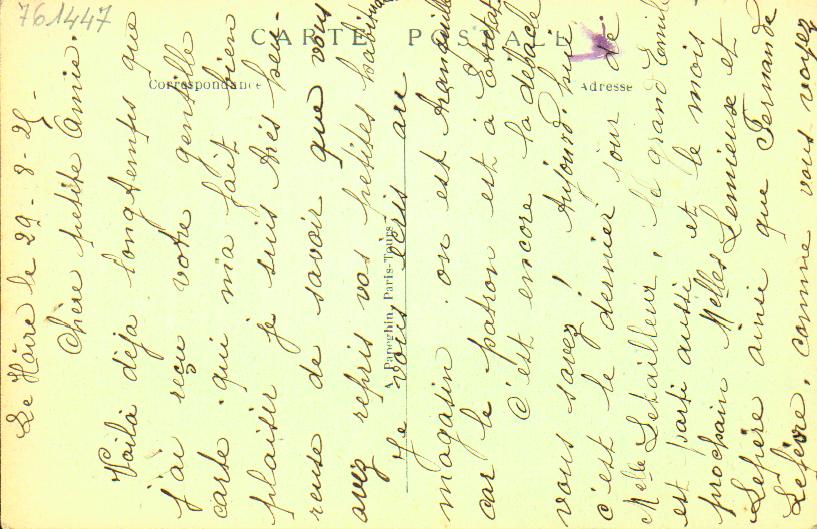 761447
CARTE POSTALE
Correspondance
Adresse
A. Papeghin, Paris-Tours
Le Hâvre le 29-8-25-
Chère petite Amie.
Voilà déja longtemps que
j'ai reçu votre gentille
carte qui m'a fait bien
plaisir je suis très heu-
reuse de savoir que vous
avez repris vos petites habitudes
Je vous écris au
magasin on est tranquille
car le patron est à Etretat
C'est encore la débacle
vous savez! Aujourd'hui
c'est le dernier jour de
Melle Letailleur, le grand Emile
est parti aussi et le mois
prochain Melles Lemieuse et
Lepère ainsi que Fernande
Lefèvre, comme vous voyez